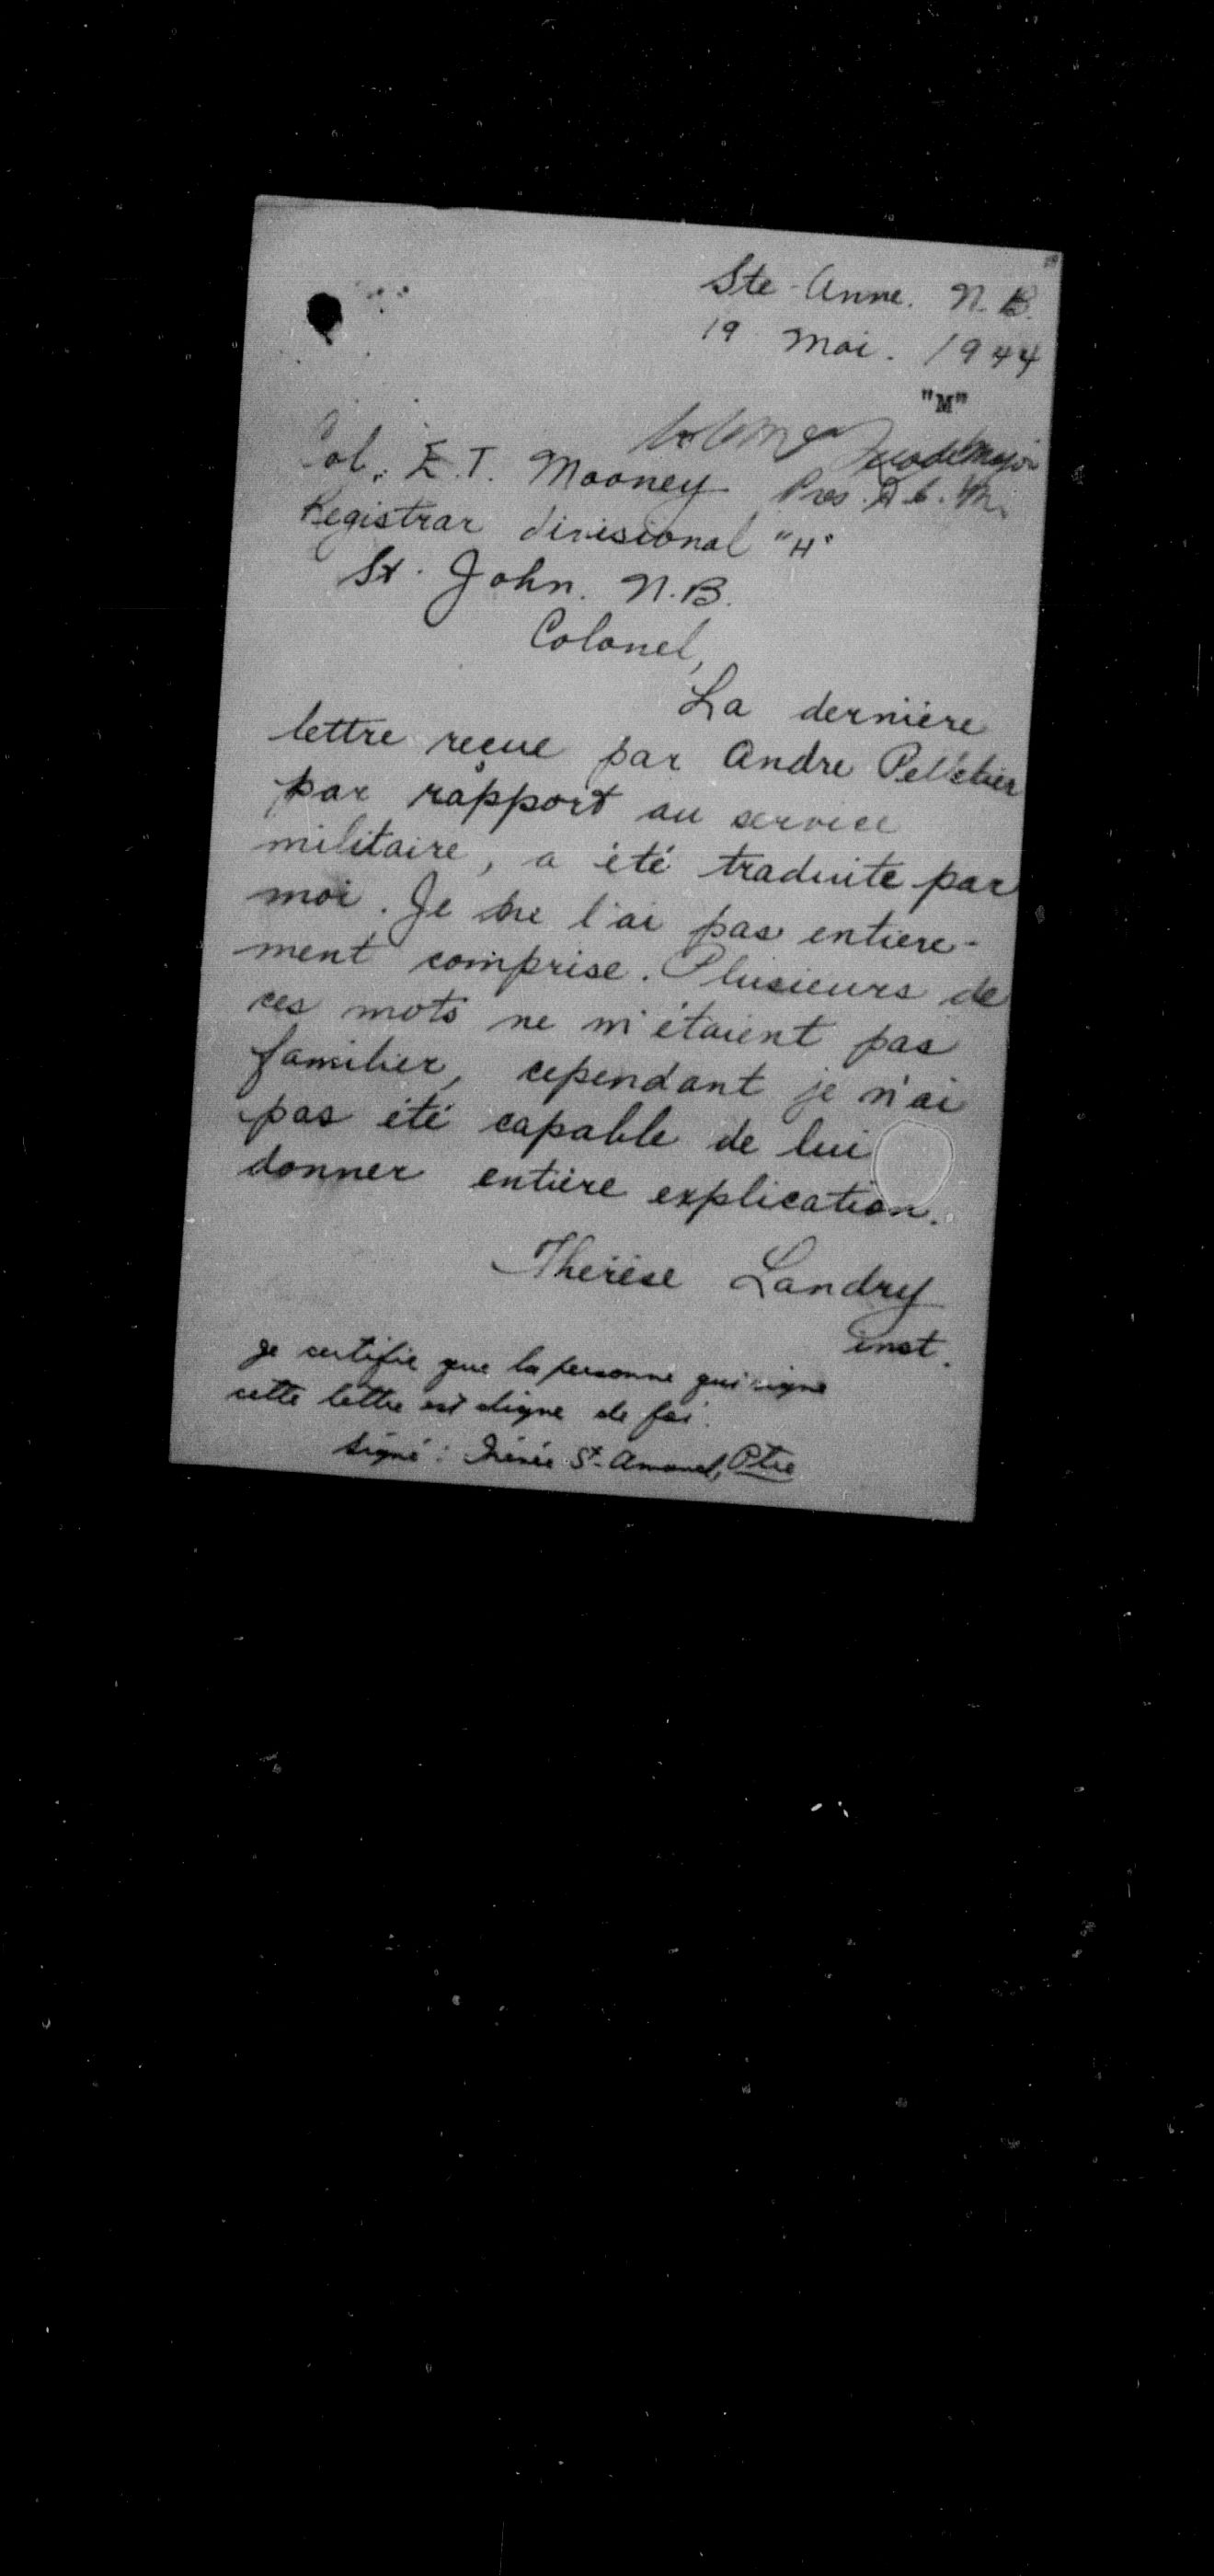 Ste-Anne. N.B.
19 Mai. 1944
"M"
Col. E.T. Mooney Pres. D.C.M.
Registrar divisional "H"
St. John. N.B.
Colonel,
La dernière
lettre reçue par Andre Pelletier
par rapport au service
militaire, a été traduite par
moi. Je ne l'ai pas entière-
ment comprise. Plusieurs de
ces mots ne m'étaient pas
familier, cependant je n'ai
pas été capable de lui
donner entière explication.
Thérèse Landry
inst.
Je certifie que la personne qui signe
cette lettre est digne de foi.
Signé: Irénée St-Amand, Ptre